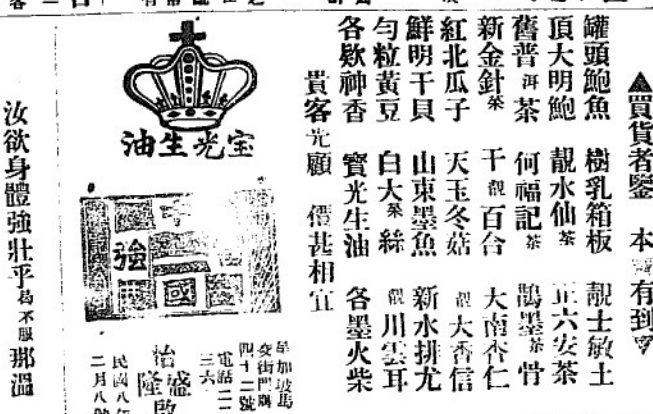 ▲買貨者鑒 本 有到
罐頭鮑魚 樹乳箱板 靚士敏土
頂大明鮑 靚水仙茶 正六安茶
舊普洱茶 何福記茶 墨茶骨
新金針菜 干靚百合 大南杏仁
紅北瓜子 天玉冬菇 靚大香信
鮮明干貝 山東墨魚 新水排尤
勻粒黃豆 白大菜絲 靚川雲耳
各欵神香 寳光生油 各墨火柴
貴客光顧 價甚相宜
宝光生油
強
國
星加坡馬
交街門牌
四十二號
電話二二
三六
怡盛
隆啟
民國八年
二月八號
汝欲身體強壯乎曷不服那溫